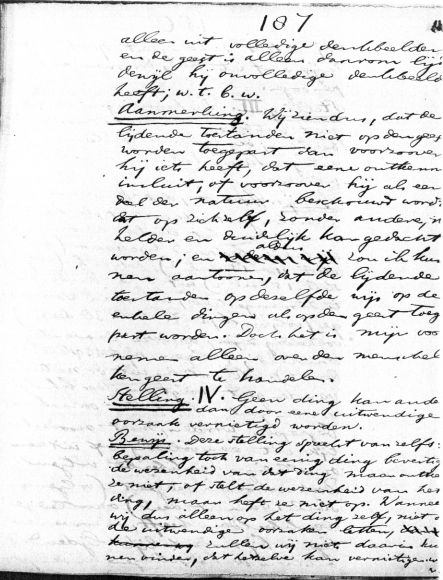 187
alleen uit volledige denkbeelden
en de geest is alleen daarom lij
denzij hij onvolledige denkbeeld
heeft; w. t. b. w.
Aanmerking. Wij zien dus, dat de
lijdende toestanden niet op den gees
worden toegepast dan voorzoover
hij iets heeft, dat eene ontkenn
insluit, of voorzoover hij als een
deel der natuur beschouwd word
dat op zich zelf, zonder andere, n
helder en duidelijk kan gedacht
worden; en aldus zou ik kun
nen aantoonen, dat de lijdende
toestanden op deselfde wijs op de
enkele dingen als op den geest toeg
past worden. Doch het is mijn voor
nemen alleen over den menschel
ken geest te handelen.
Stelling. IV. Geen ding kan ande
dan door eene uitwendige
oorzaak vernietigd worden.
Bewijs. Deze stelling spreekt van zelfs:
bepaling toch van eenig ding bevestig
de wezenheid van dat ding maar ontke
ze niet; of stelt de wezenheid van het
ding, maar heft ze niet op. Wannee
wij dus alleen op het ding zelf, niet
de uitwendige oorzaken letten,
zullen wij niets daarin ku
nen vinden, dat hetzelve kan vernietigen